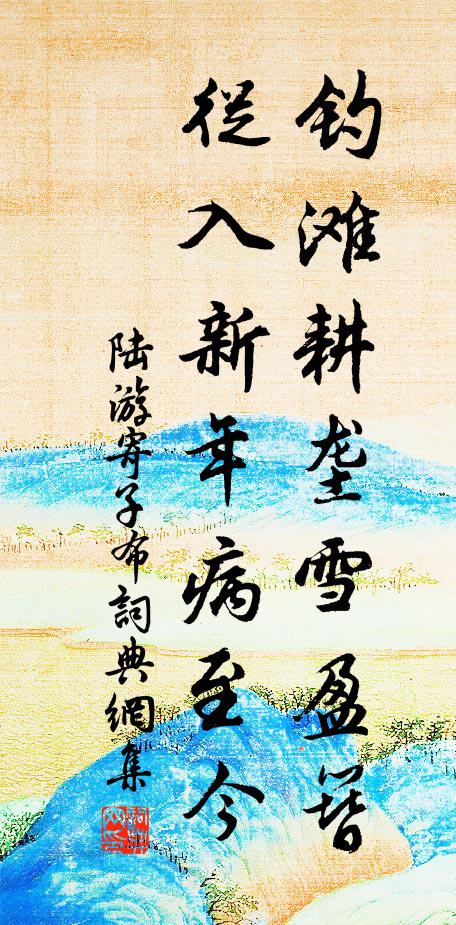 钓滩耕垄雪盈簪
从入新年病至今
陆游寄子布詞典網集